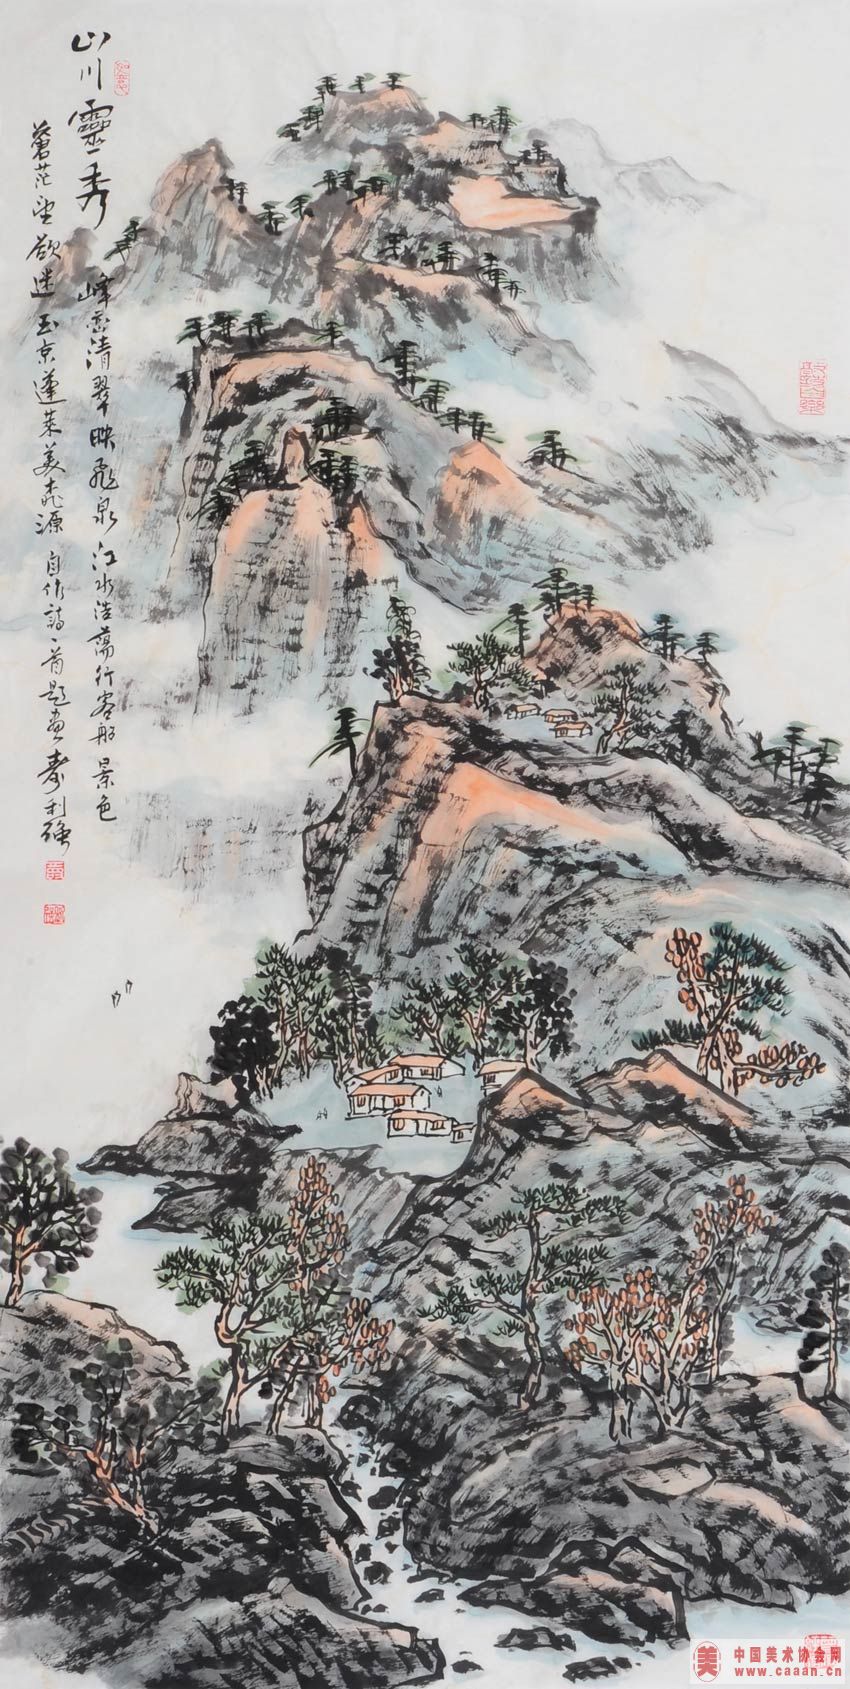 山川靈秀
峰峦清翠映飛泉江水浩蕩行客船景色
蒼茫望欲迷玉京蓬萊美桃源自作詩一首题画秦利强
中国美术协会网
www.caaan.cn